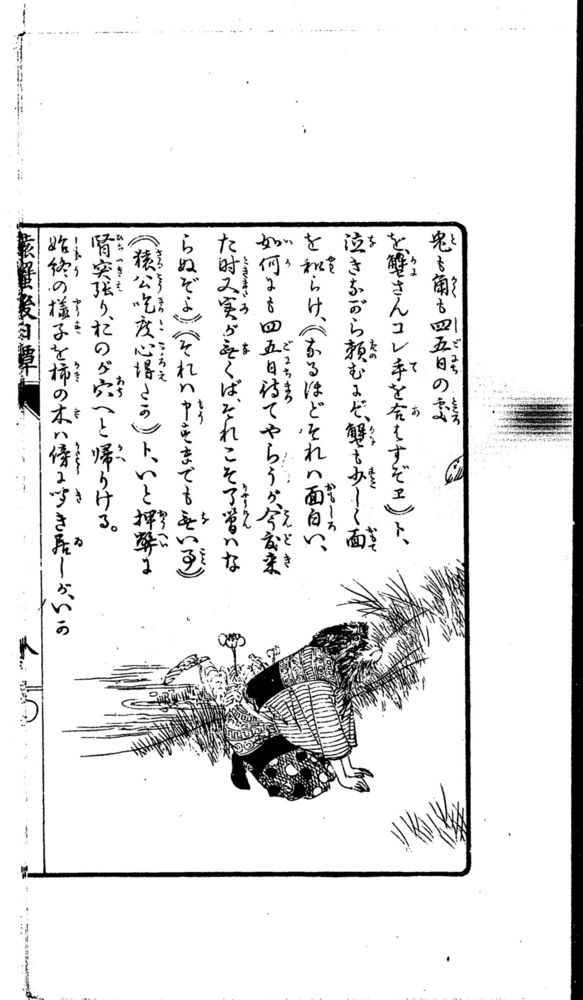 兎も角も四五日の處
を、蟹さんコレ手を合はすぞヱ」ト、
泣きながら頼むにぞ、蟹も少しく面
を和らけ、(なるほどそれハ面白い、
如何にも四五日待てやらうが、今度来
た時又実が無くば、それこそ了簡ハな
らぬぞよ)(それハ申すまでも無い事)
(猿公吃度心得たか)ト、いと押柄に
臂突張り、おのが穴へと帰りける。
始終の様子を柿の木ハ傍に聞き居しが、いか
猿蟹後日譚